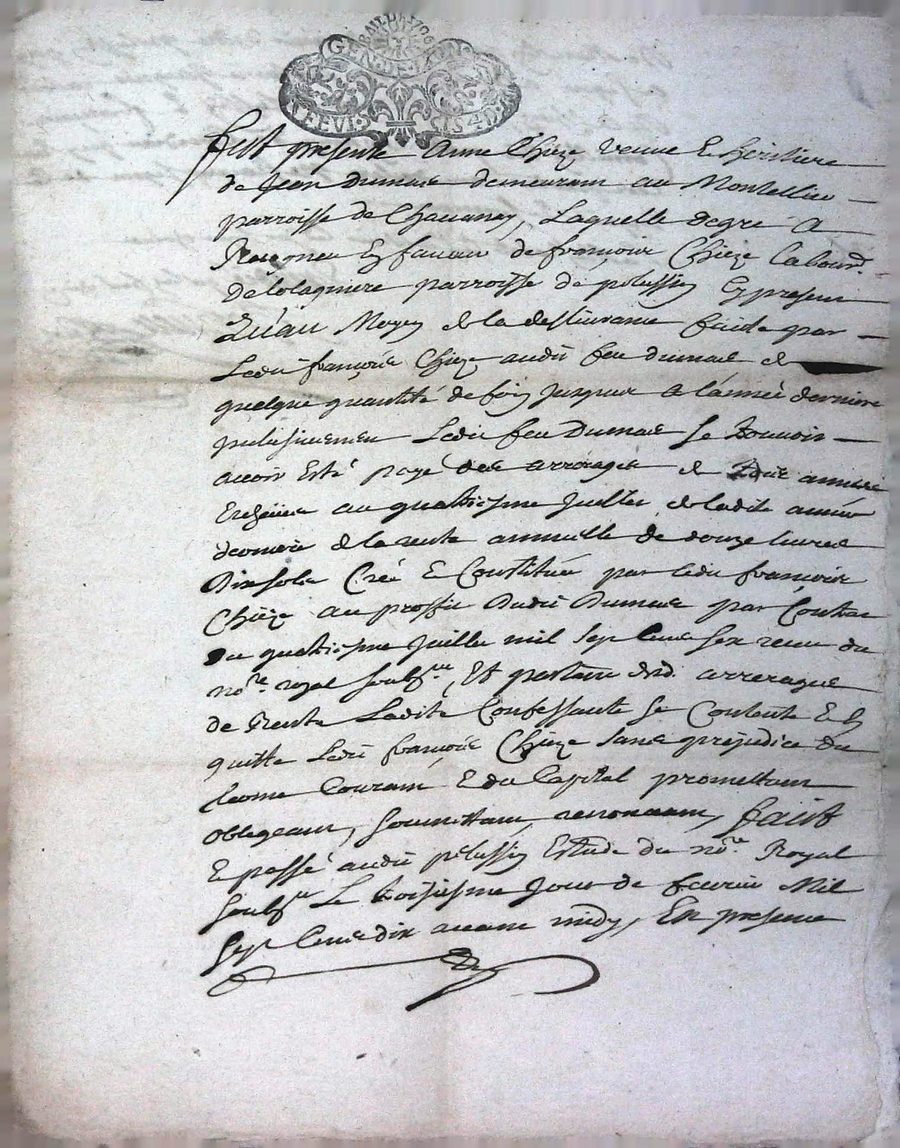 GEN DE LYON
Fust presente Anne Chieze veuve & heritiere
de Jean Dumas demeurant au Montellier
parroisse de Chavanay, Laquelle degre a
Reconeu En faveur de françois Chieze labourr.
parroisse de pelussin Cy present
Qu'au Moyen de la deslivrance faicte par
Ledit françois Chieze audit feu Dumas de
quelque quantité de foin jusques a l'année derniere
Ledit feu Dumas se trouvoit
avoir Esté payé des arrerages de annees
Escheues au quattriesme Juillet de ladite année
derniere de la rente annuelle de douze livres
Dix sols Créé & Constituée par ledit françois
Chieze au proffit Dudit Dumas par Contrat
du quattriesme Juillet mil sept cens six receu du
nore. royal soubsne, Et partant arrerages
de Rente Ladite Confessante se Contente & En
quitte Ledit françois Chieze sans prejudice du
terme Courant & du Capital promettant
obligeant, soumettant, renonceant, faict
& passé audit pelussin Estude du nore. Royal
soubsne Le troisiesme Jour de fevrier Mil
Sept Cens dix avant midy, En presence